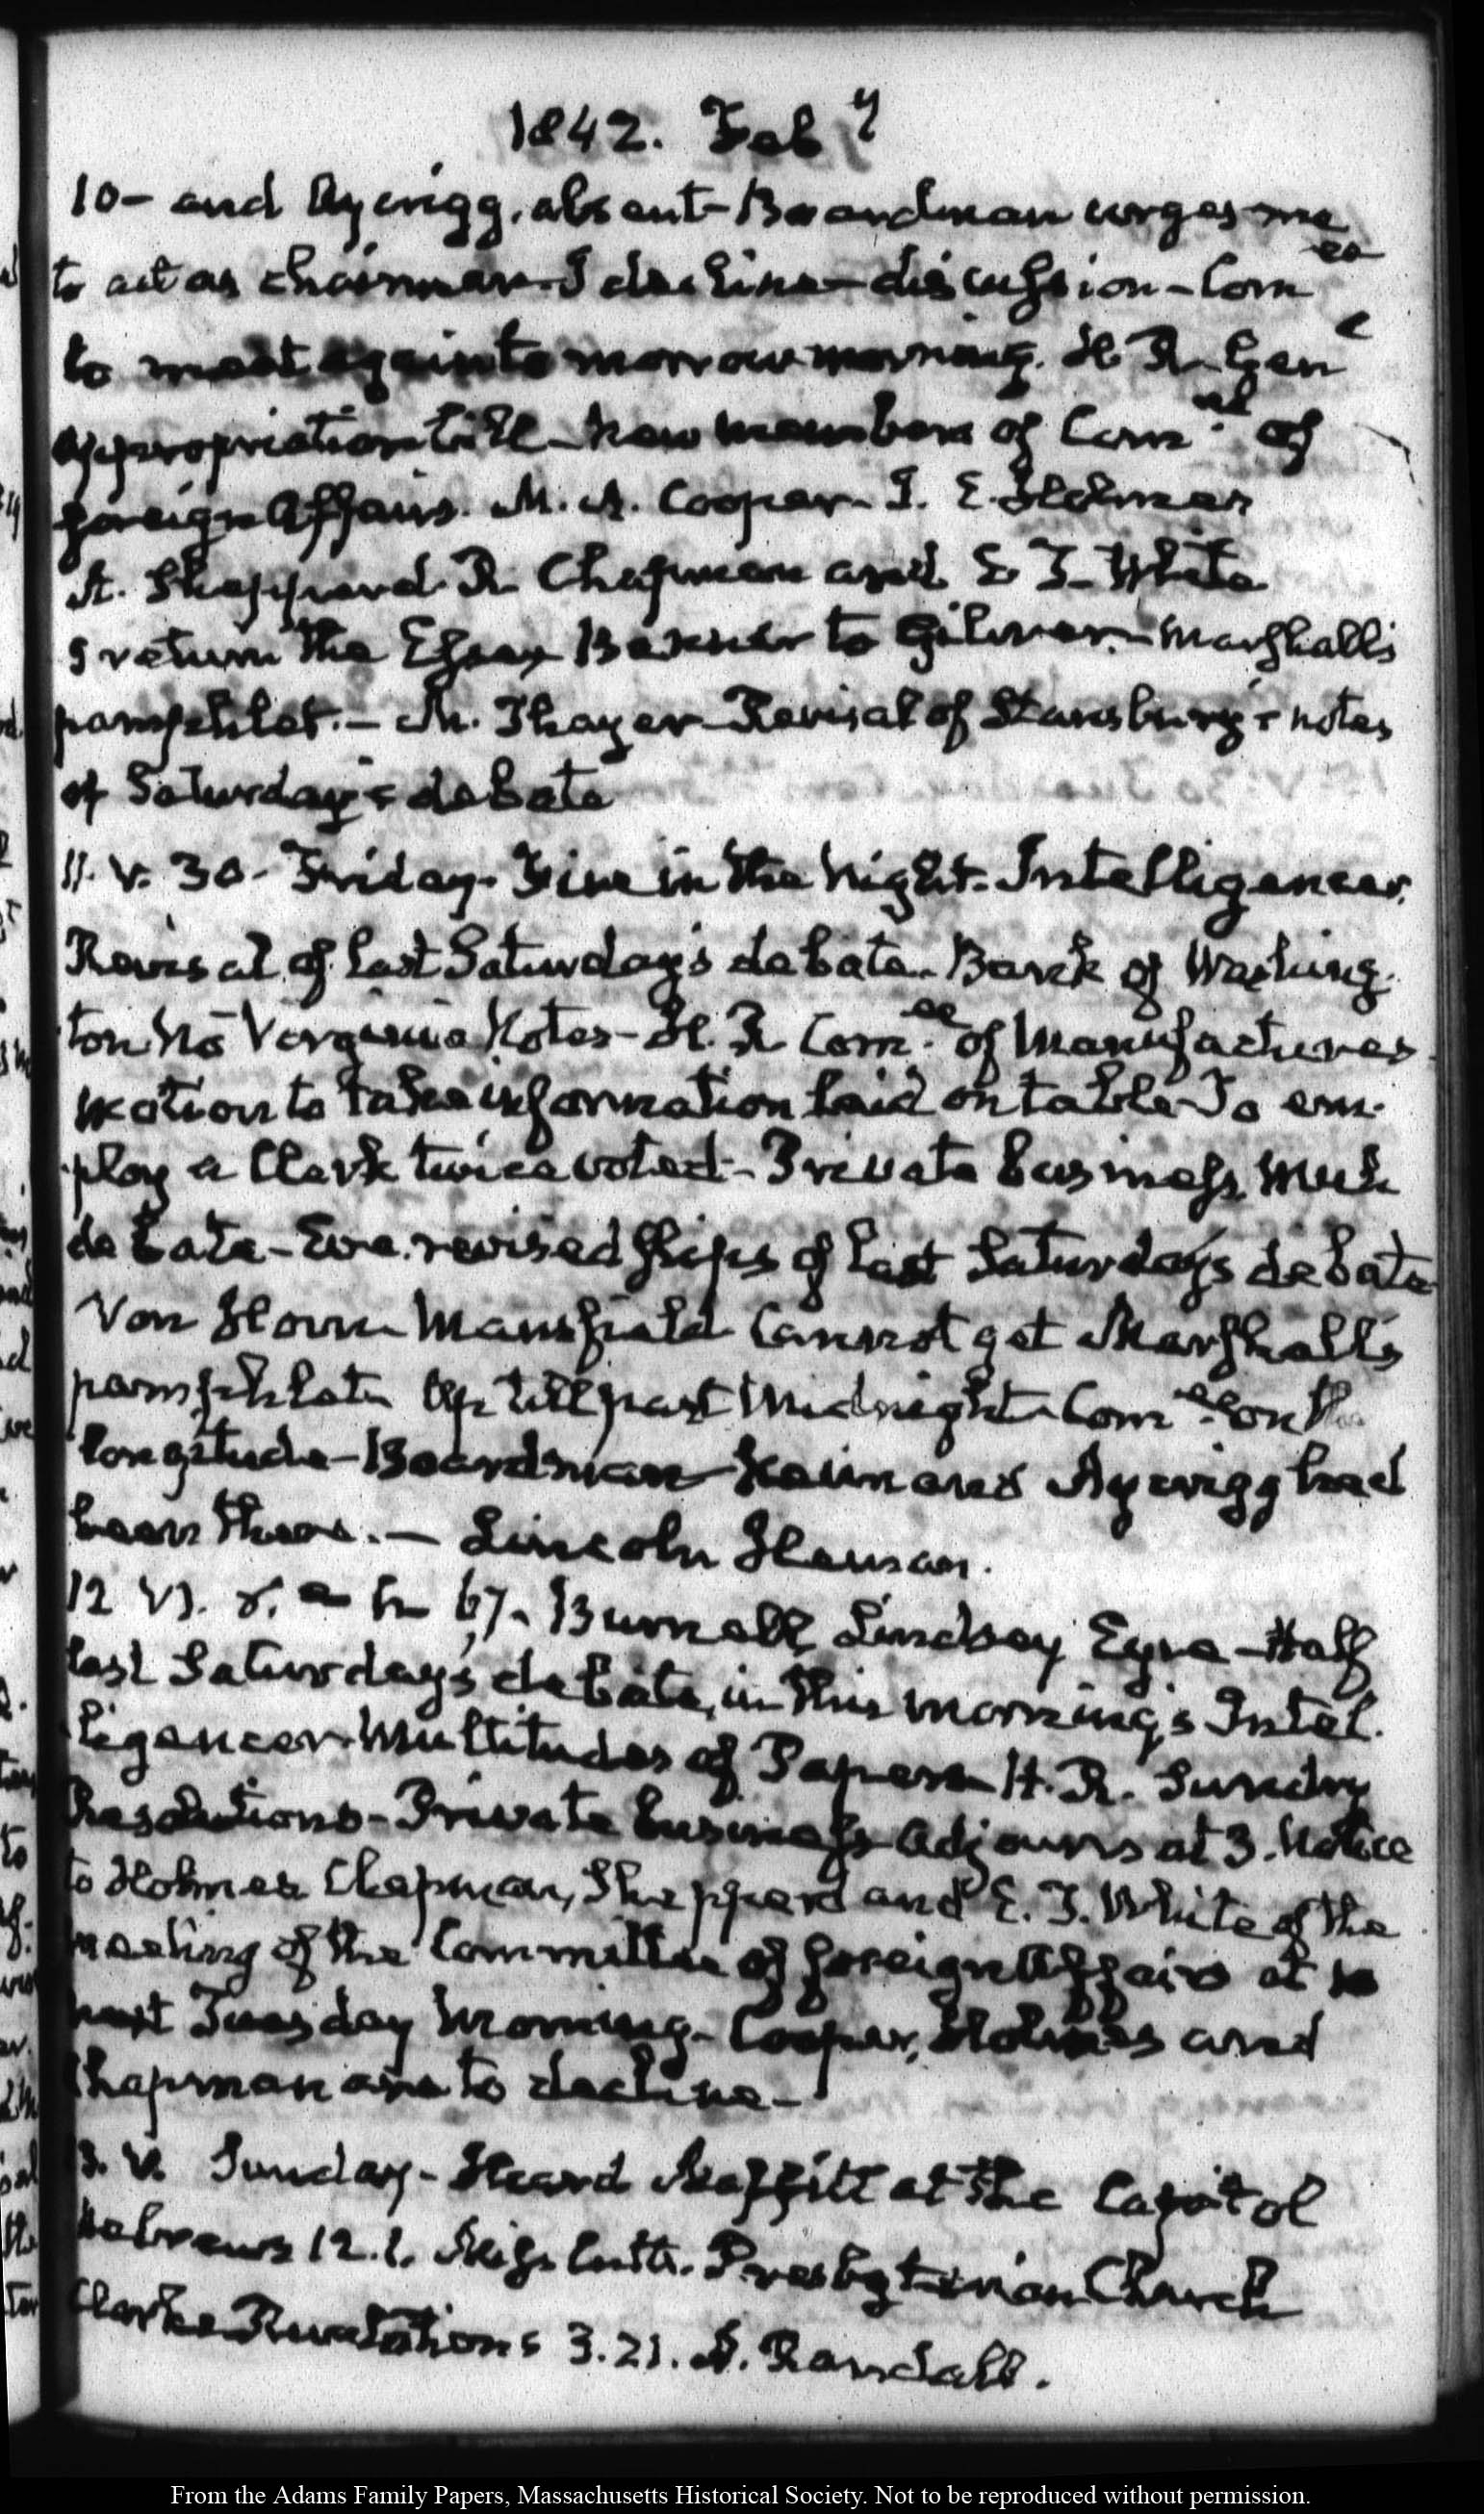 1842. Feb y
10 – and Aycrigg, absent – Boardman urges me
to act as chairman – I decline – discussion – Com ee
to meet again to morrow morning. H. R. Gen l
appropriation bill – new members of Com. ee of
foreign Affairs. M. A. Cooper – I. E. Holmes
A. Shepperd R. Chapman and E. J. White
I return the Essay Banner to Gilmer. – Marshall's
pamphlet. – M. Thayer – Revisal of Stansbury's notes
of Saturday's debate
11. V. 30. Friday. Fire in the Night. Intelligencer.
Revisal of last Saturday's debate. Bank of Washing.
ton No Virginia Notes – H. R. Com. ee of Manufactures
motion to take information laid on table – To em.
ploy a Clerk twice voted – Private business, Much
debate – Eve. revised slips of last Saturday's debate
Van Horn Mansfield – Cannot get Marshall's
pamphlet – Up till past Midnight – Com. ee on the
longitude – Boardman – Keim and Aycrigg had
been there. – Lincoln House.
12 VI. r. 67. Burnell Lindsay Eyre – Half
last Saturday's debate, in this morning's Intel.
ligencer – Multitudes of Papers – H. R. Sundry
Resolutions – Private business – Adjourns at 3. Notice
to Holmes Chapman, Shepperd and E. J. White of the
meeting of the Committee of foreign Affairs at 10
next Tuesday Morning – Cooper, Holmes and
Chapman are to decline –
13. V. Sunday – Heard Maffitt at the Capitol
Hebrews 12.1. Miss Cutts. Presbyterian Church
Clarke Revelations 3.21. A. Randall.
From the Adams Family Papers, Massachusetts Historical Society. Not to be reproduced without permission.